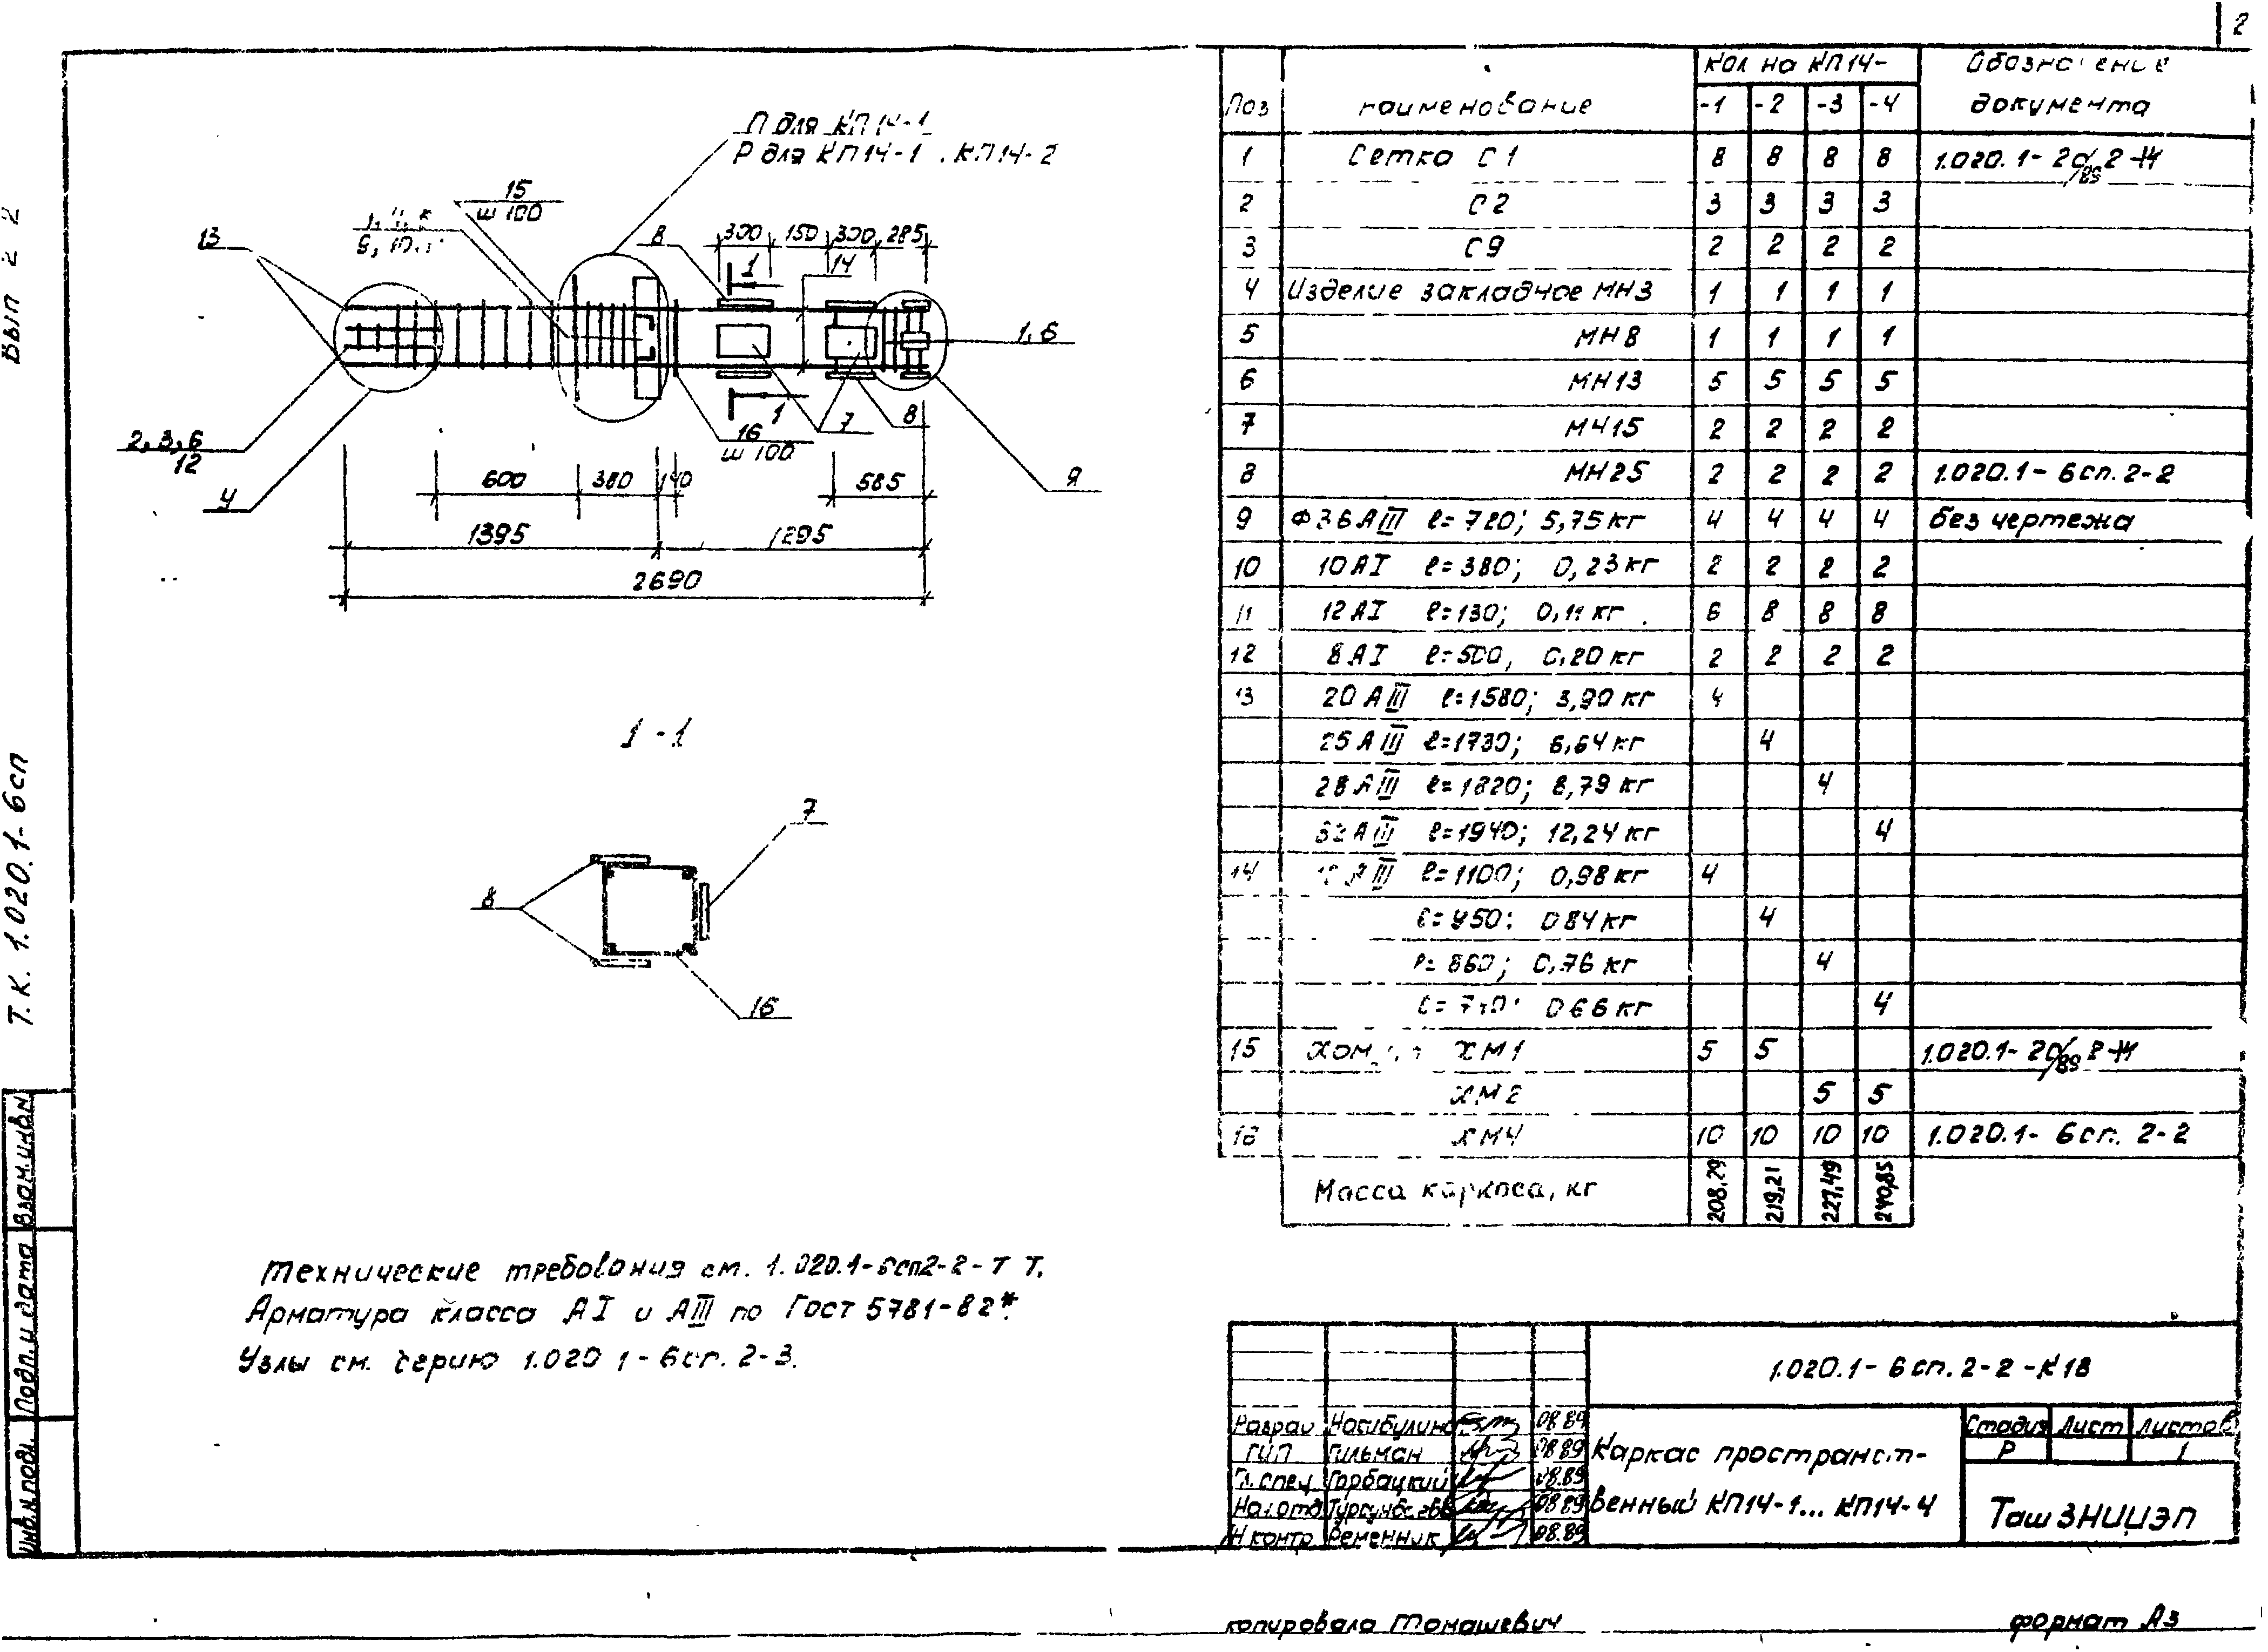 2
Вып 2-2
Т.К. 1.020.1-6сп
Взам.инв.N
Подп. и дата
Инв.N подл.
П для КП14-1
Р для КП14-1, КП14-2
15
ш 100
13
8
300 150 300 285
1
14
1,6
2,3,6
12
У
16
ш 100
1
7
8
Я
600 380 140 585
1395 1295
2690
1-1
7
8
16
Технические требования см. 1.020.1-6сп2-2-ТТ.
Арматура класса АI и АIII по Гост 5781-82*.
Узлы см. серию 1.020 1-6сп. 2-3.
Поз наименование Кол на КП14- Обозначение документа
-1 -2 -3 -4
1 Сетка С1 8 8 8 8 1.020.1-
2 С2 3 3 3 3
3 С9 2 2 2 2
4 Изделие закладное МН3 1 1 1 1
5 МН8 1 1 1 1
6 МН13 5 5 5 5
7 МН15 2 2 2 2
8 МН25 2 2 2 2 1.020.1-6сп.2-2
9 Ф36АIII ℓ=720; 5,75кг 4 4 4 4 без чертежа
10 10АI ℓ=380; 0,23кг 2 2 2 2
11 12АI ℓ=130; 0,11кг 6 8 8 8
12 8АI ℓ=500, 0,20кг 2 2 2 2
13 20АIII ℓ=1580; 3,90кг 4
25АIII ℓ=1730; 6,64кг 4
28АIII ℓ=1820; 8,79кг 4
32АIII ℓ=1940; 12,24кг 4
14 ℓ=1100; 0,98кг 4
ℓ=950; 0,84кг 4
ℓ=860; 0,76кг 4
0,66кг 4
15 ХМ1 5 5 1.020.1-
ХМ2 5 5
16 ХМ4 10 10 10 10 1.020.1-6сп. 2-2
Масса каркаса, кг 208,29 219,21 227,49 240,85
1.020.1-6сп.2-2-К18
Разраб Насибулина 08.89
ГИП Гильман 08.89
Гл.спец Горбацкий 08.89
Нач.отд 08.89
Н.контр Ременник 08.89
Каркас пространст-
венный КП14-1... КП14-4
Стадия Лист Листов
Р 1
ТашЗНИИЭП
копировала Томашевич
формат А3